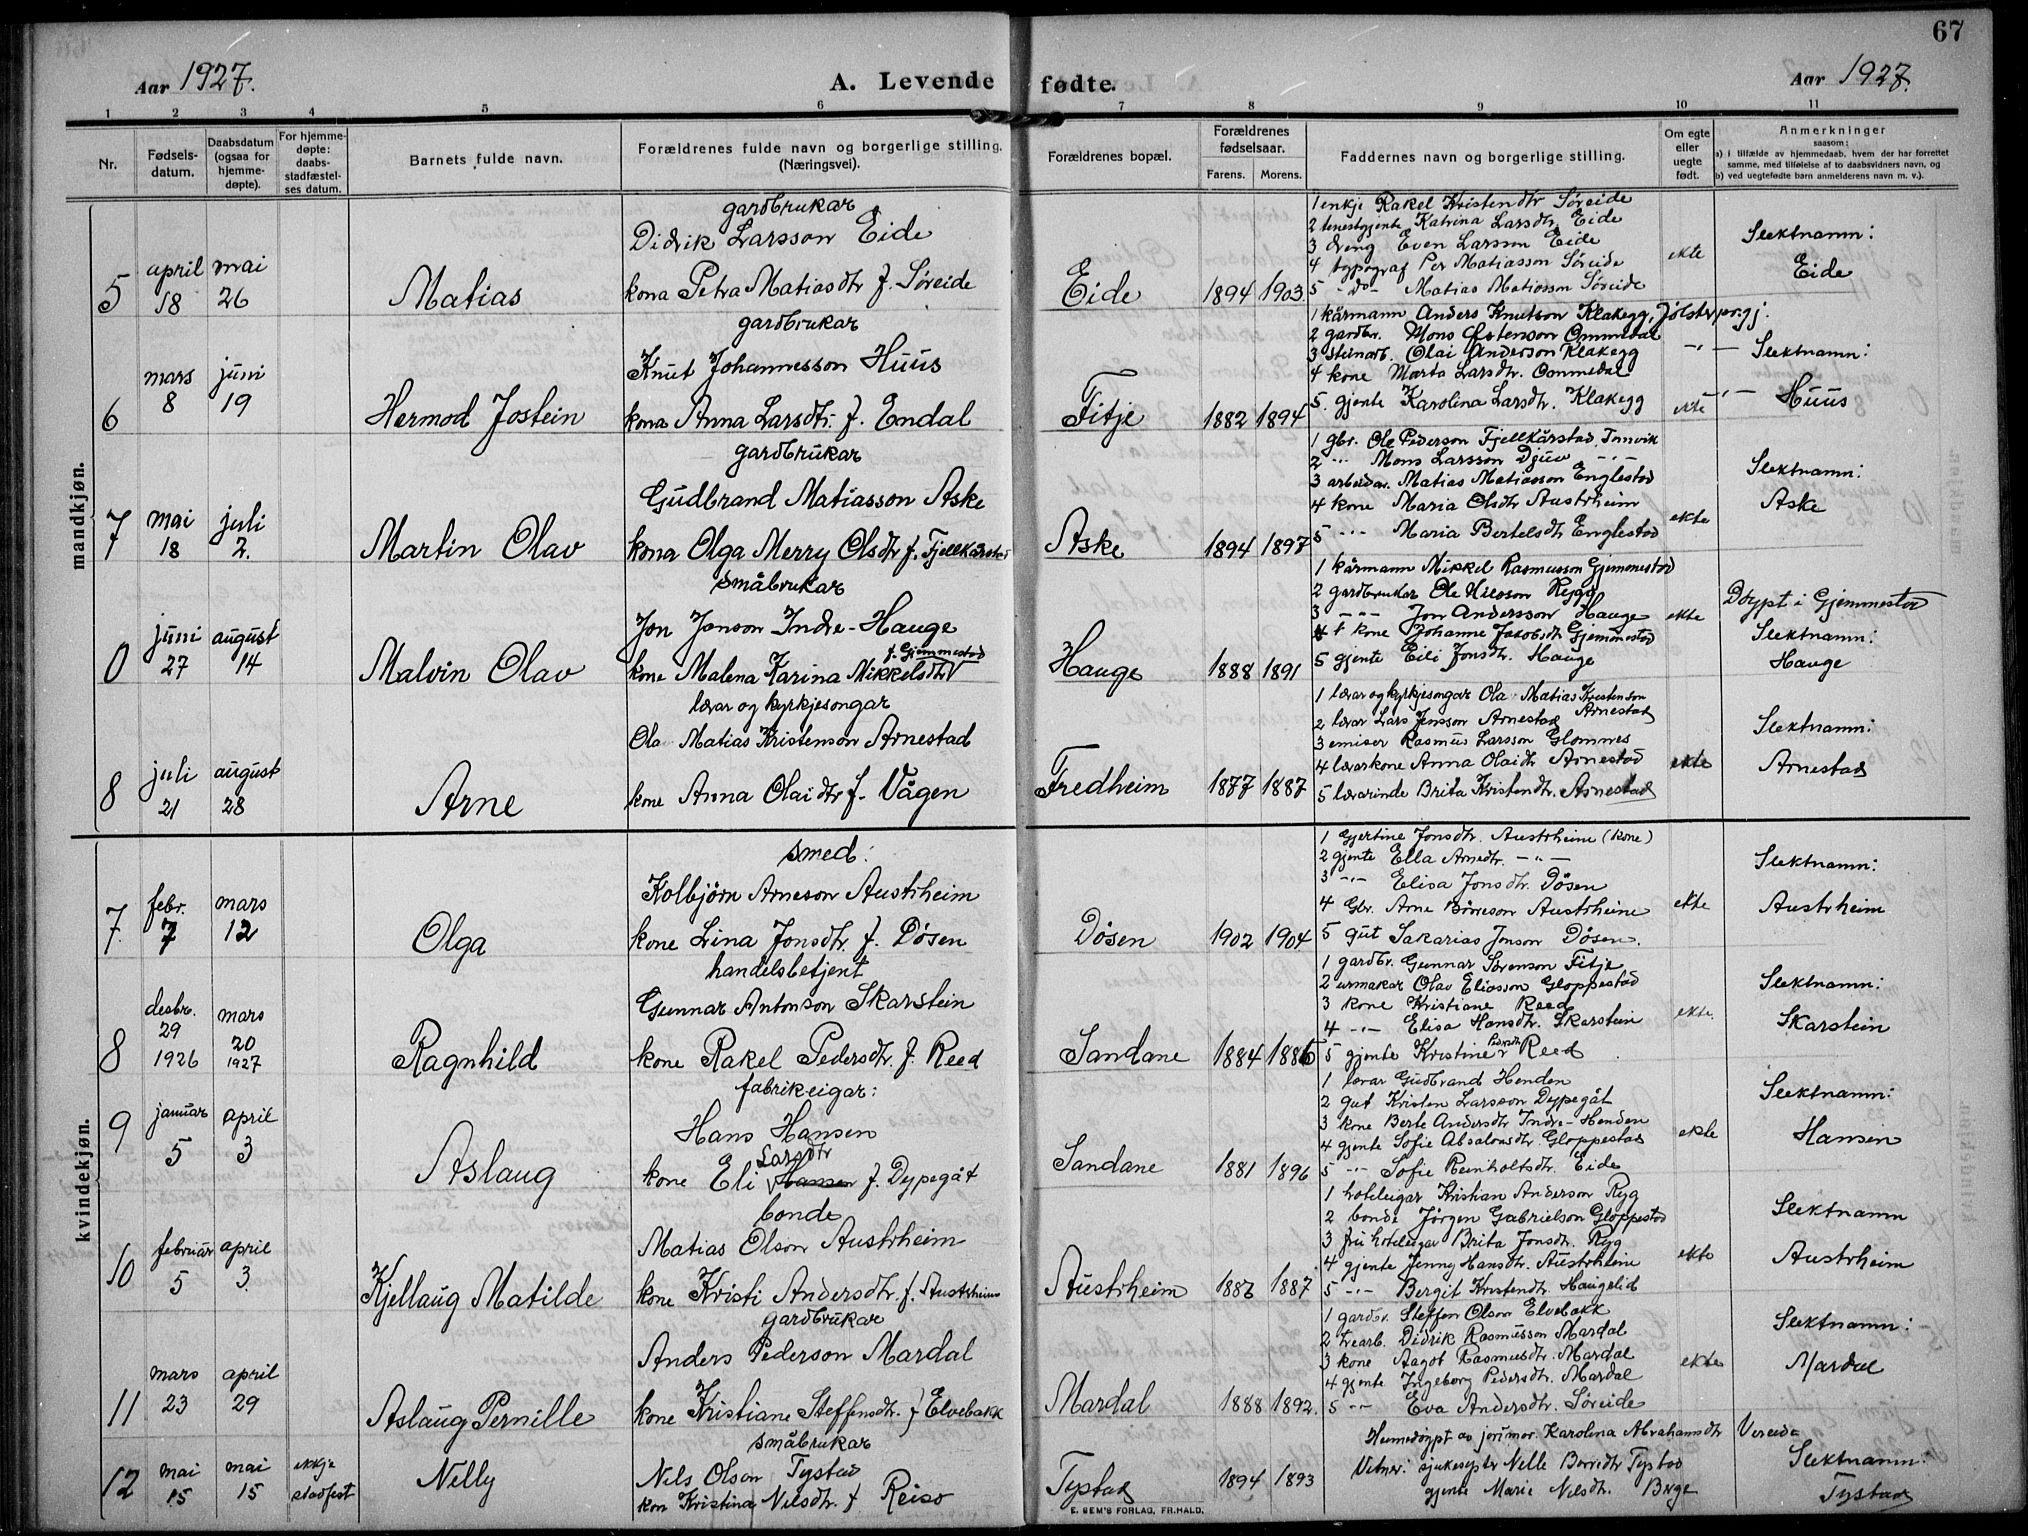 67
Aar 1927.
A. Levende fødte.
Aar 1927.
1 2 3 4 5 6 7 8 9 10 11
Nr.
Fødsels-
datum.
Daabsdatum
(ogsaa for
hjemme-
døpte).
For hjemme-
døpte:
daabs-
stadfæstel-
ses datum.
Barnets fulde navn.
Forældrenes fulde navn og borgerlige stilling.
(Næringsvei).
Forældrenes bopæl.
Forældrenes
fødselsaar.
Farens. Morens.
Faddernes navn og borgerlige stilling.
Om egte
eller
uegte
født.
Anmerkninger
saasom:
a) i tilfælde av hjemmedaab, hvem der har forrettet
samme, med tilføielse af to daabsvidners navn, og
b) ved uegtefødte barn anmelderens navn m. v.).
mandkjøn.
5
april
18
mai
26
Matias
gardbrukar
Didrik Larsson Eide
kona Petra Matiasdtr f. Søreide
Eide
1894 1903
1 enkje Rakel Kristendtr Søreide
2 tenestgjente Katrina Larsdtr Eide
3 dreng Even Larsson Eide
4 typograf Per Matiasson Søreide
5 -do- Matias Matiasson Søreide
ekte
Slektnamn:
Eide
6
mars
8
juni
19
Hermod Jostein
gardbrukar
Knut Johannesson Huus
kona Anna Larsdtr. f. Endal
Fitje
1882 1894
1 kårmann Anders Knutson Klakegg, Jølster pr.gj.
2 gardbr. Mons Østenson Ommedal
3 steinarb. Olai Anderson Klakegg -"-
4 kone Marta Larsdtr. Ommedal
5. gjente Karolina Larsdtr. Klakegg
ekte
Slektnamn:
Huus
7
mai
18
juli
2.
Martin Olav
gardbrukar
Gudbrand Matiasson Aske
kona Olga Merry Olsdtr f. Fjellkårstad
Aske
1894 1897
1 gbr. Ole Pederson Fjellkårstad, Innvik
2 " Mons Larsson Djuv -"-
3 arbeidar. Matias Matiasson Englestad
4 kone Maria Olsdtr Austrheim
5 -"- Maria Bertelsdtr Englestad
ekte
Slektnamn:
Aske
0
juni
27
august
14
Malvin Olav
småbrukar
Jon Jonson Indre-Hauge
kone Malena Karina Mikkelsdtr f. Gjemmestad
Hauge
1888 1891
1 kårmann Mikkel Rasmusson Gjemmestad
2 gardbrukar Ole Nilsson Rygg
3 -"- Jon Andersson Hauge
4 kone Johanne Jakobsdtr Gjemmestad
5 gjente Eili Jonsdtr. Hauge
ekte
Døypt i Gjemmestad
Slektnamn:
Hauge
8
juli
21
august
28
Arne
lærar og kyrkjesongar
Ola Matias Kristenson Arnestad
kone Anna Olaidtr f. Vågen
Fredheim
1877 1887
1 lærar og kyrkjesongar Ola Matias Kristenson
Arnestad
2 lærar Lars Jensson Arnestad
3 emisær Rasmus Larsson Glomnes
4 lærarkone Anna Olaidtr Arnestad
5 lærarinde Brita Kristendtr. Arnestad
ekte
Slektnamn:
Arnestad
kvindekjøn.
7.
febr.
7
mars
12
Olga
smed:
Kolbjørn Arneson Austrheim
kone Lina Jonsdtr. f. Døsen
Døsen
1902 1904
1 Gjertine Jonsdtr. Austrheim (kone)
2 gjente Ella Arnedtr. -"-
3 -"- Elisa Jonsdtr. Døsen
4 Gbr. Arne Børreson Austrheim
5 gut Sakarias Jonson Døsen.
ekte
Slektnamn:
Austrheim
8
desbr.
29
1926
mars
20
1927
Ragnhild
handelsbetjent
Gunnar Antonson Skarstein
kone Rakel Pedersdtr. f. Reed
Sandane
1884 1886
1 gardbr. Gunnar Sørenson Fitje
2 urmakar Olav Eliasson Gloppestad
3 kone Kristiane Reed
4 -"- Elisa Hansdtr. Skarstein
5 gjente Kristine Pedersdtr Reed
ekte.
Slektnamn:
Skarstein
9
januar
5
april
3
Aslaug
fabrikeigar:
Hans Hansen
kone Eli Larsdtr Hansen f. Dypegåt
Sandane
1881 1896
1 lærar Gudbrand Henden
2 gut Kristen Larsson Dypegåt
3 kone Berte Andersdtr Indre-Henden
4 gjente Sofie Absalonsdtr. Gloppestad
5 -"- Sofie Reinholtsdtr. Eide
ekte
Slektnamn:
Hansen
10
februar
5
april
3.
Kjellaug Matilde
bonde
Matias Olson Austrheim
kone Kristi Andersdtr. f. Austrheim
Austrheim
1887
1 hoteleigar Kristian Anderson Ryg
2 bonde Jørgen Gabrielson Gloppestad
3 fru hoteleigar Brita Jonsdtr. Ryg
4 gjente Jenny Hansdtr. Austrheim
5 -"- Bergit Kristendtr. Haugelid
ekte
Slektnamn
Austrheim
11
mars
23
april
29
Aslaug Pernille
gardbrukar
Anders Pederson Mardal
kone Kristiane Steffensdtr. f Elvebakk
Mardal
1888 1892.
1 gardbr. Steffen Olson Elvebakk
2 trearb. Didrik Rasmusson Mardal
3 kone Aagot Rasmusdtr. Mardal
4 gjente Ingeborg Pedersdtr. Mardal
5 -"- Eva Andersdtr. Søreide
ekte
Slektnamn:
Mardal
12
mai
15
mai
15
ekkje
stadfest
Nelly
småbrukar
Nils Olson Tystad
kon Kristina Nilsdtr. f Reiso
Tystad
1894 1893
Heimedøypt av jormor. Karolina Abrahamsdtr Vereide
Vitner: sjukesyster Nelle Borredtr Tystad
gjente Marie Nilsdtr. Berge
Slektnamn:
Tystad
E. SEM'S FORLAG, FR.HALD.